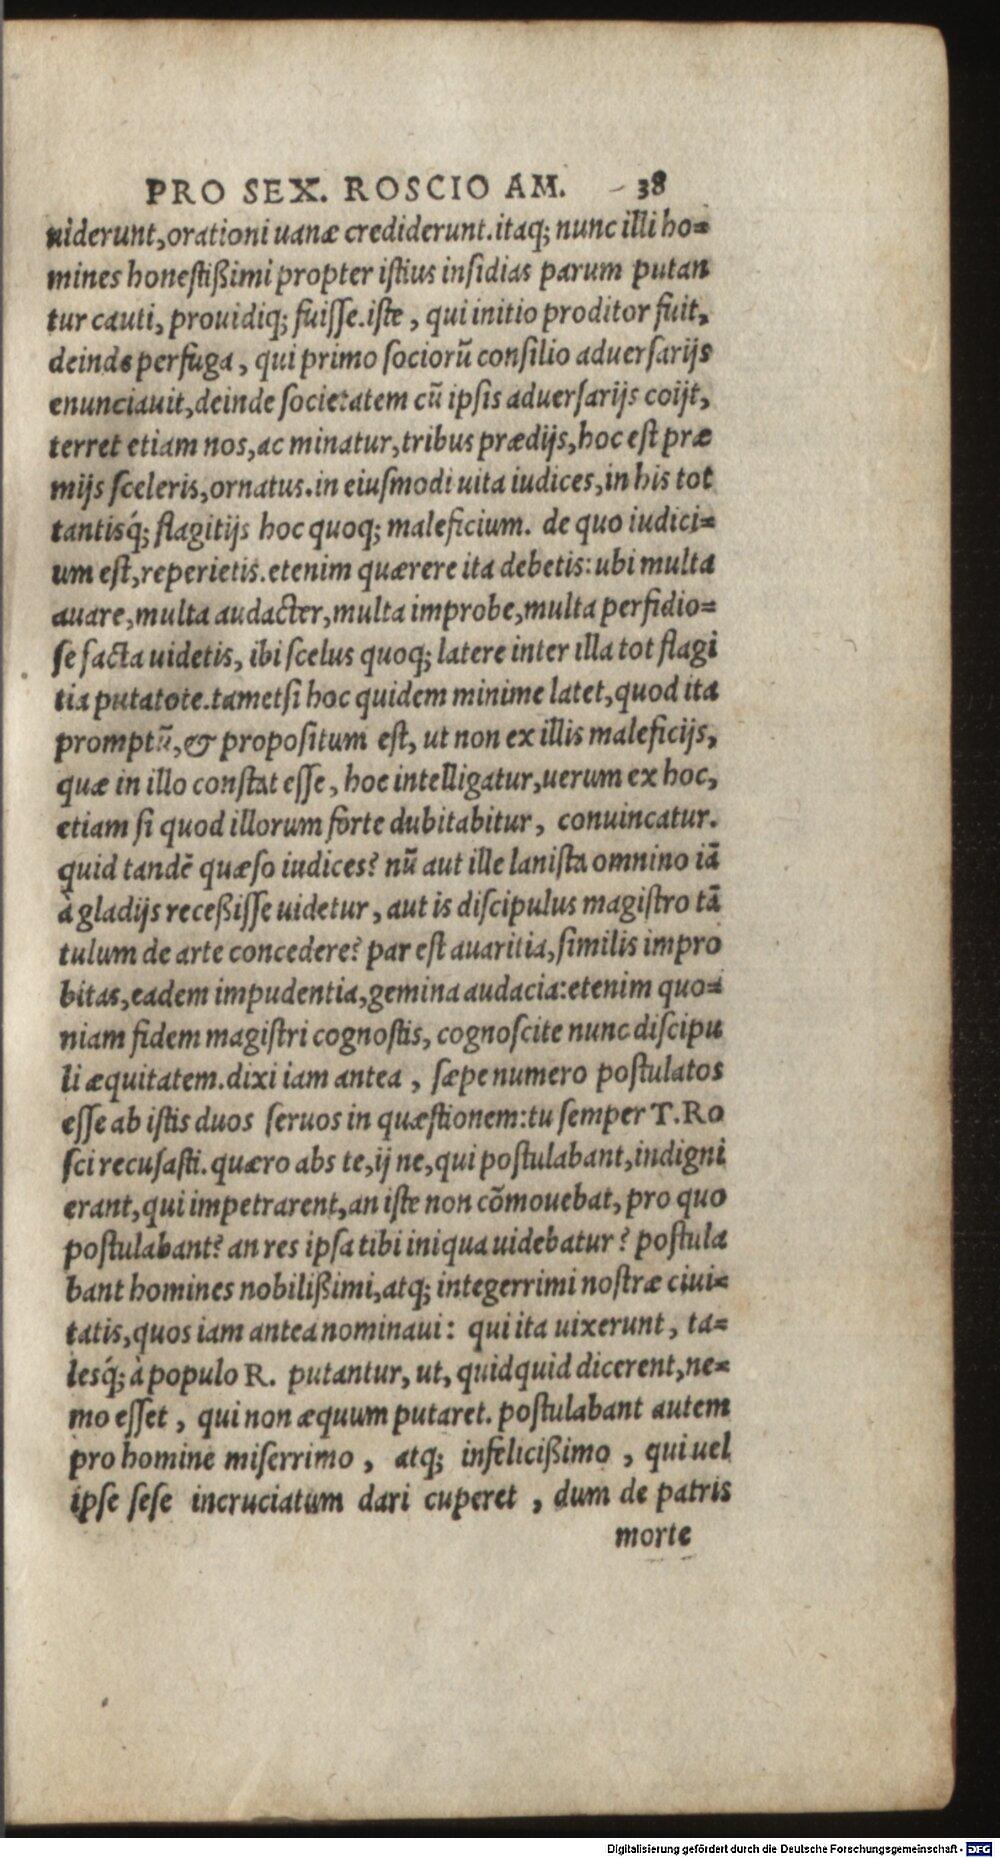 PRO SEX. ROSCIO AM. 38
uiderunt, orationi uanæ crediderunt. itaq; nunc illi ho=
mines honestißimi propter istius insidias parum putan
tur cauti, prouidiq; fuisse. iste, qui initio proditor fuit,
deinde perfuga, qui primo sociorũ consilio aduersarijs
enunciauit, deinde societatem cũ ipsis aduersarijs coijt,
terret etiam nos, ac minatur, tribus prædijs, hoc est præ
mijs sceleris, ornatus. in eiusmodi uita iudices, in his tot
tantisq́; flagitijs hoc quoq; maleficium. de quo iudici=
um est, reperietis. etenim quærere ita debetis: ubi multa
auare, multa audacter, multa improbe, multa perfidio=
se facta uidetis, ibi scelus quoq; latere inter illa tot flagi
tia putatote. tametsi hoc quidem minime latet, quod ita
promptũ, & propositum est, ut non ex illis maleficijs,
quæ in illo constat esse, hoc intelligatur, uerum ex hoc,
etiam si quod illorum forte dubitabitur, conuincatur.
quid tandẽ quæso iudices? nũ aut ille lanista omnino iã
à gladijs receßisse uidetur, aut is discipulus magistro tã
tulum de arte concedere? par est auaritia, similis impro
bitas, eadem impudentia, gemina audacia: etenim quo=
niam fidem magistri cognostis, cognoscite nunc discipu
li æquitatem. dixi iam antea, sæpe numero postulatos
esse ab istis duos seruos in quæstionem: tu semper T. Ro
sci recusasti. quæro abs te, ij ne, qui postulabant, indigni
erant, qui impetrarent, an iste non cõmouebat, pro quo
postulabant? an res ipsa tibi iniqua uidebatur? postula
bant homines nobilißimi, atq; integerrimi nostræ ciui=
tatis, quos iam antea nominaui: qui ita uixerunt, ta=
lesq́; à populo R. putantur, ut, quidquid dicerent, ne=
mo esset, qui non æquum putaret. postulabant autem
pro homine miserrimo, atq; infelicißimo, qui uel
ipse sese incruciatum dari cuperet, dum de patris
morte
Digitalisierung gefördert durch die Deutsche Forschungsgemeinschaft - DFG